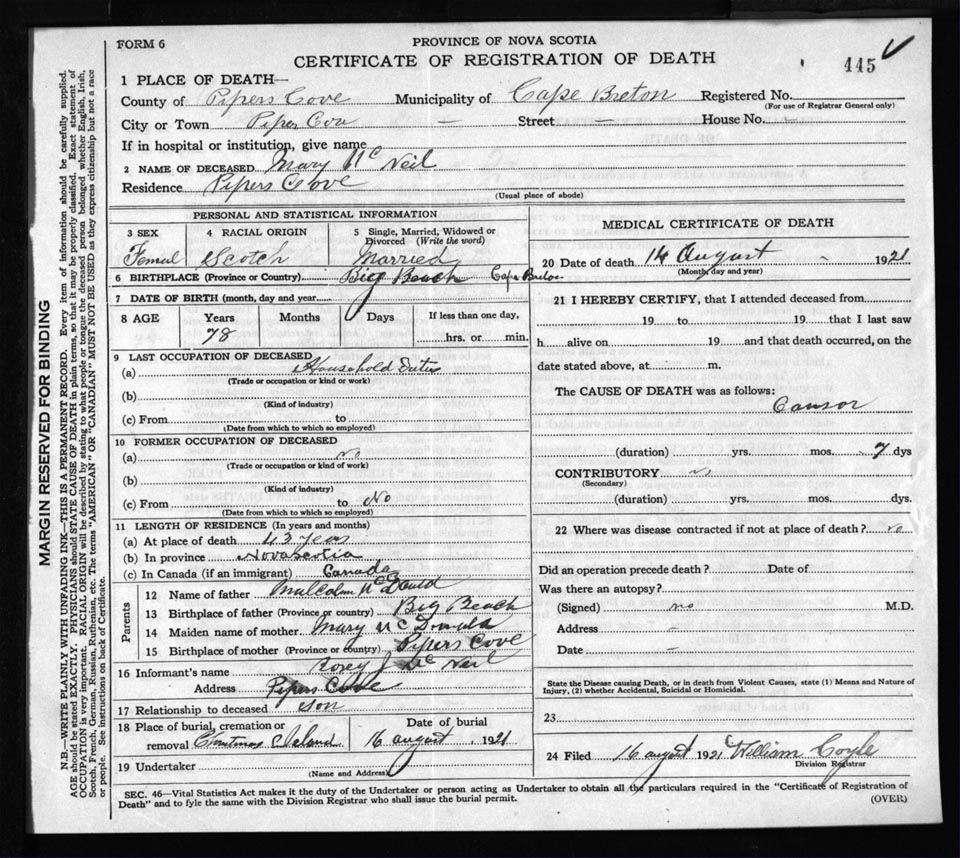 FORM 6
PROVINCE OF NOVA SCOTIA
CERTIFICATE OF REGISTRATION OF DEATH
445
MARGIN RESERVED FOR BINDING
N.B.—WRITE PLAINLY WITH UNFADING INK—THIS IS A PERMANENT RECORD. Every item of information should be carefully supplied.
AGE should be stated EXACTLY. PHYSICIANS should STATE CAUSE OF DEATH in plain terms, so that it may be properly classified. Exact statement of
OCCUPATION is very important. RACIAL ORIGIN will be described by stating to what people or tongue the deceased person belonged whether English, Irish,
Scotch, French, German, Russian, Ruthenian, etc. The terms "AMERICAN" OR "CANADIAN" MUST NOT BE USED as they express citizenship but not a race
or people. See instructions on back of Certificate.
1 PLACE OF DEATH—
County of Pipers Cove Municipality of Cape Breton Registered No.
(For use of Registrar General only)
City or Town Piper Cov — Street — House No. —
If in hospital or institution, give name
2 NAME OF DECEASED Mary Mc Neil
Residence Pipers Cove
(Usual place of abode)
PERSONAL AND STATISTICAL INFORMATION
3 SEX 4 RACIAL ORIGIN 5 Single, Married, Widowed or
Divorced (Write the word)
Femal Scotch Married
6 BIRTHPLACE (Province or Country) Big Beach Cape Breton
7 DATE OF BIRTH (month, day and year)
8 AGE Years Months Days If less than one day,
78 hrs. or min.
9 LAST OCCUPATION OF DECEASED
(a) Household Duties
(Trade or occupation or kind or work)
(b)
(Kind of industry)
(c) From to
(Date from which to which so employed)
10 FORMER OCCUPATION OF DECEASED
(a) no
(Trade or occupation or kind of work)
(b)
(Kind of industry)
(c) From to No
(Date from which to which so employed)
11 LENGTH OF RESIDENCE (In years and months)
(a) At place of death 43 years
(b) In province Novascotia
(c) In Canada (if an immigrant) Canada
Parents
12 Name of father Malcolm
13 Birthplace of father (Province or country) Big Beach
14 Maiden name of mother Mary Mc Donald
15 Birthplace of mother (Province or country) Pipers Cove
16 Informant's name J Mc Neil
Address Pipers Cove
17 Relationship to deceased son
18 Place of burial, cremation or Date of burial
removal Christmas Island 16 august, 1921
19 Undertaker
(Name and Address)
MEDICAL CERTIFICATE OF DEATH
20 Date of death 14 August 1921
(Month, day and year)
21 I HEREBY CERTIFY, that I attended deceased from
19 to 19 that I last saw
h alive on 19 and that death occurred, on the
date stated above, at m.
The CAUSE OF DEATH was as follows:
Cansor
(duration) yrs. mos. 7 dys
CONTRIBUTORY
(Secondary)
(duration) yrs. mos. dys.
22 Where was disease contracted if not at place of death? no
Did an operation precede death? Date of
Was there an autopsy?
(Signed) no M.D.
Address —
Date —
State the Disease causing Death, or in death from Violent Causes, state (1) Means and Nature of
Injury, (2) whether Accidental, Suicidal or Homicidal.
23
24 Filed 16 august 1921 William Coyle
Division Registrar
SEC. 46—Vital Statistics Act makes it the duty of the Undertaker or person acting as Undertaker to obtain all the particulars required in the "Certificate of Registration of
Death" and to fyle the same with the Division Registrar who shall issue the burial permit.
(OVER)